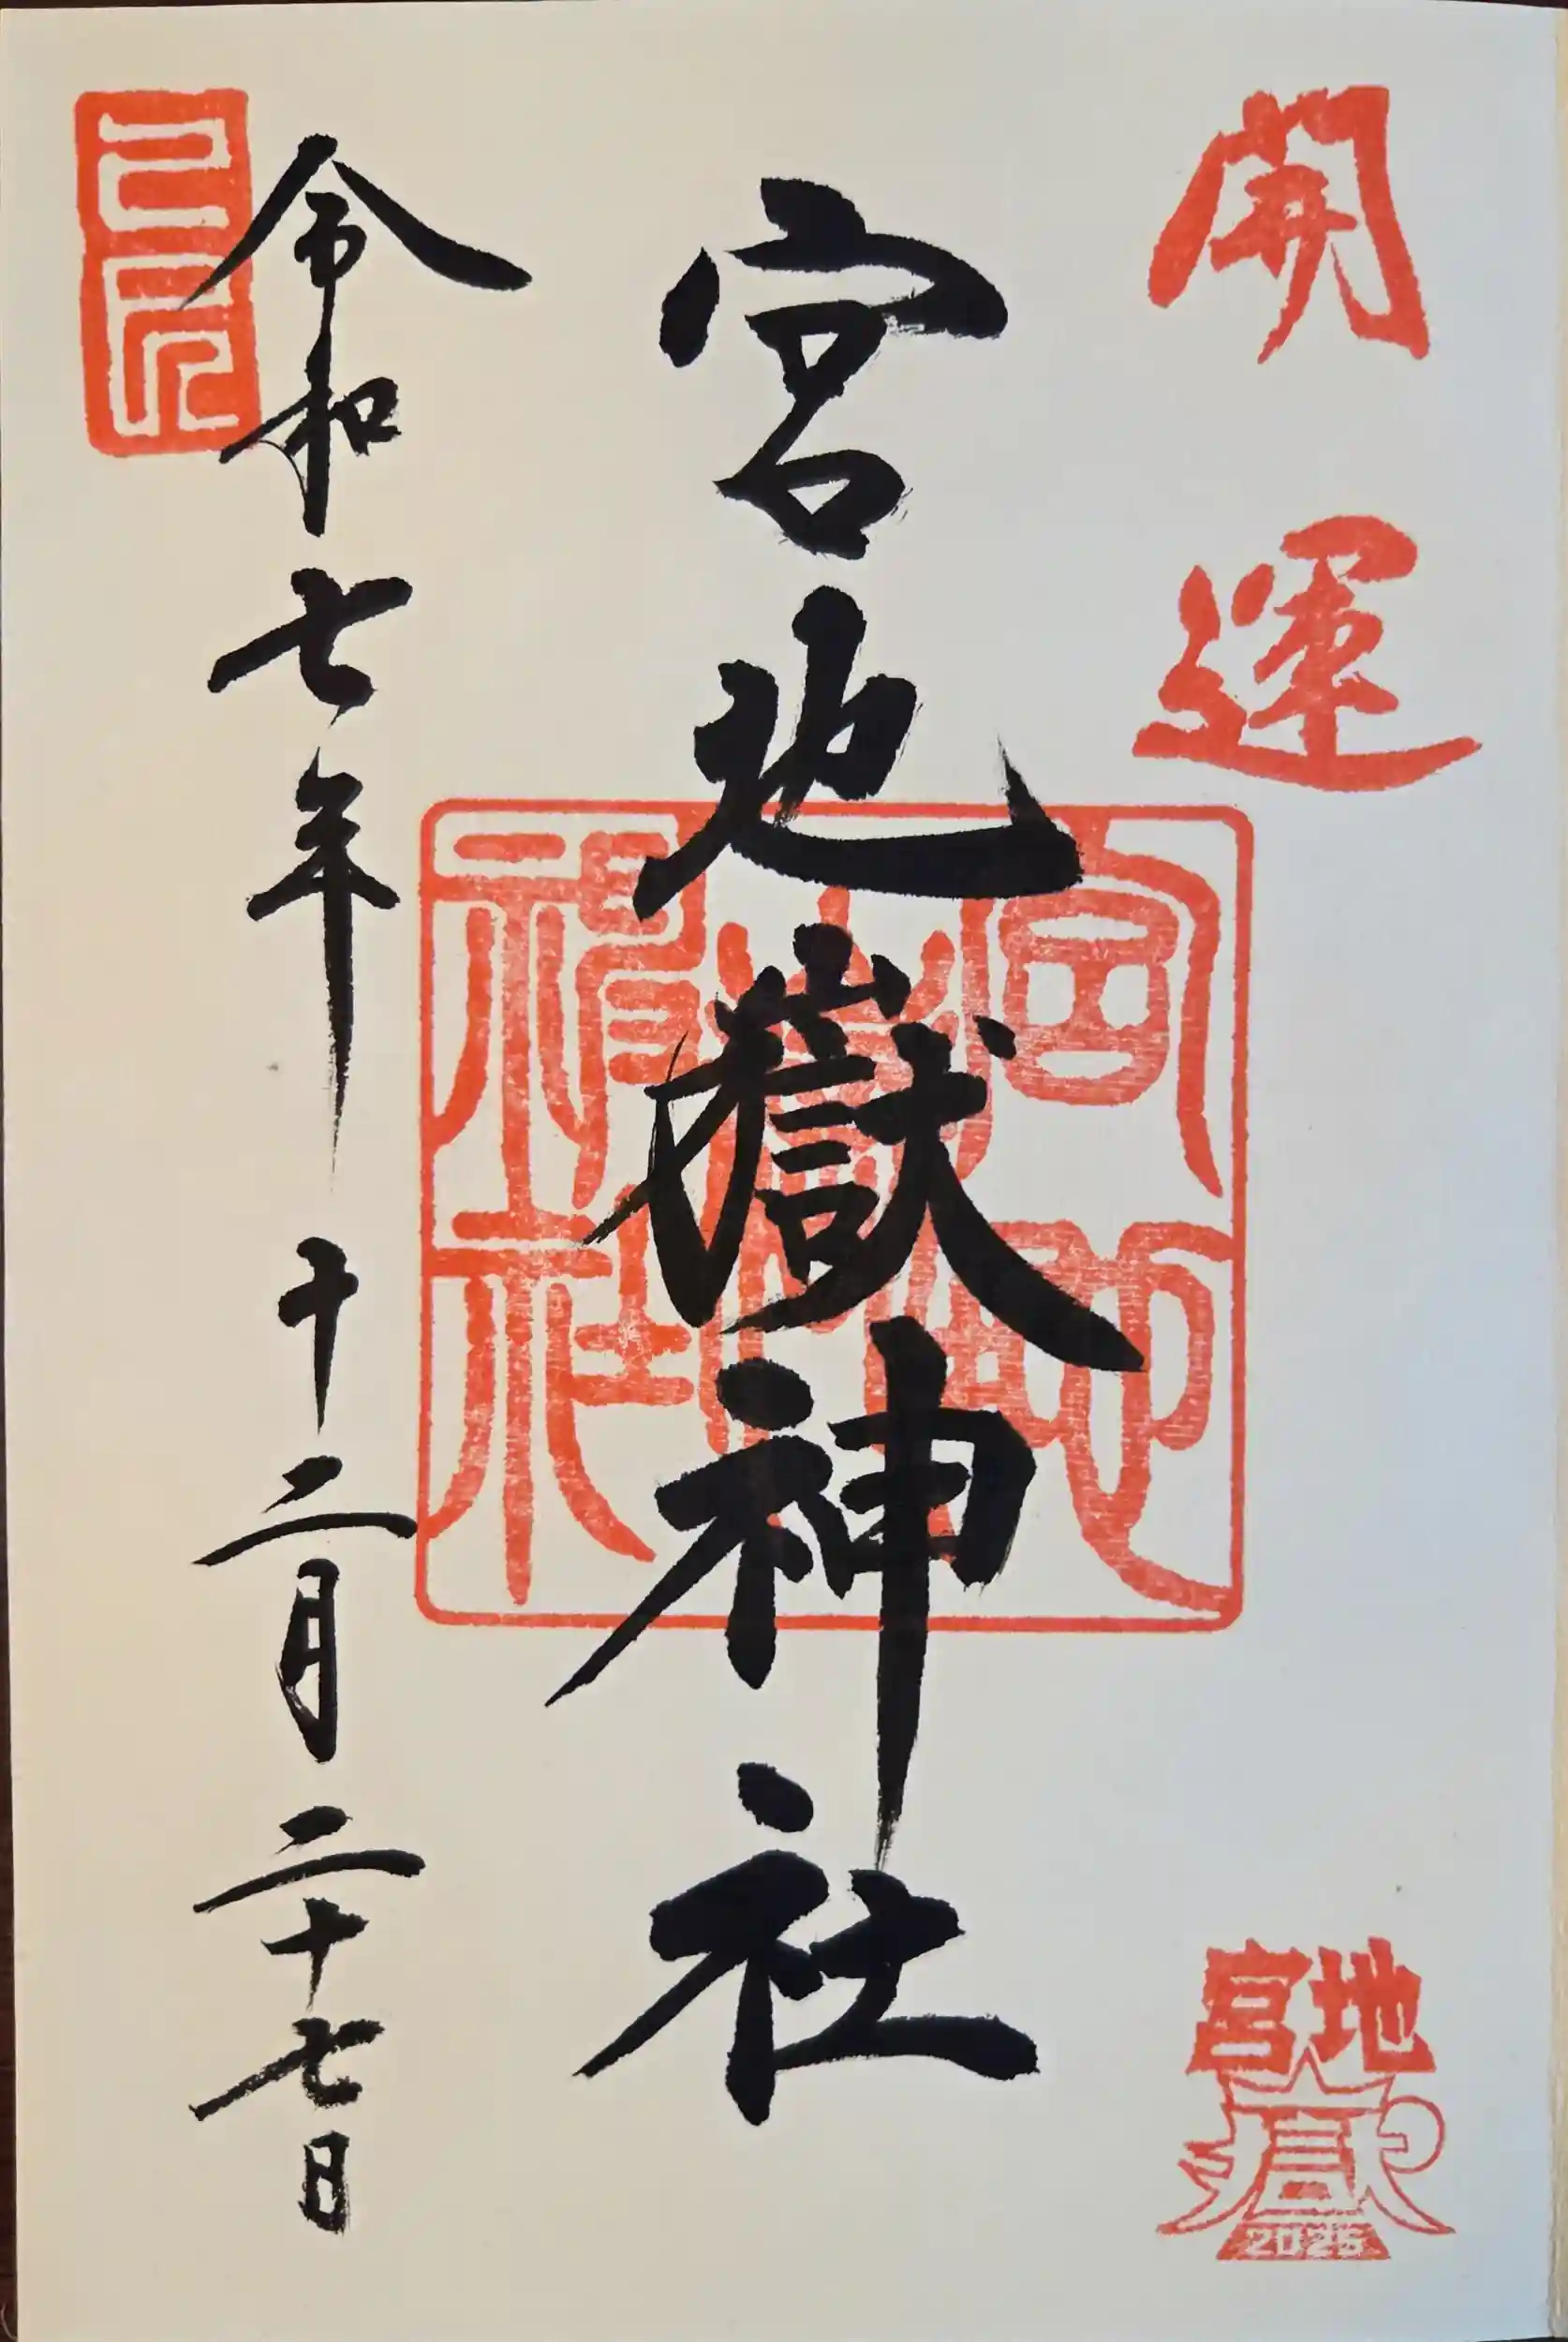 開運
宮地
嶽
2025
宮地嶽神社
宮地
嶽
神社
令和七年 十二月二十七日